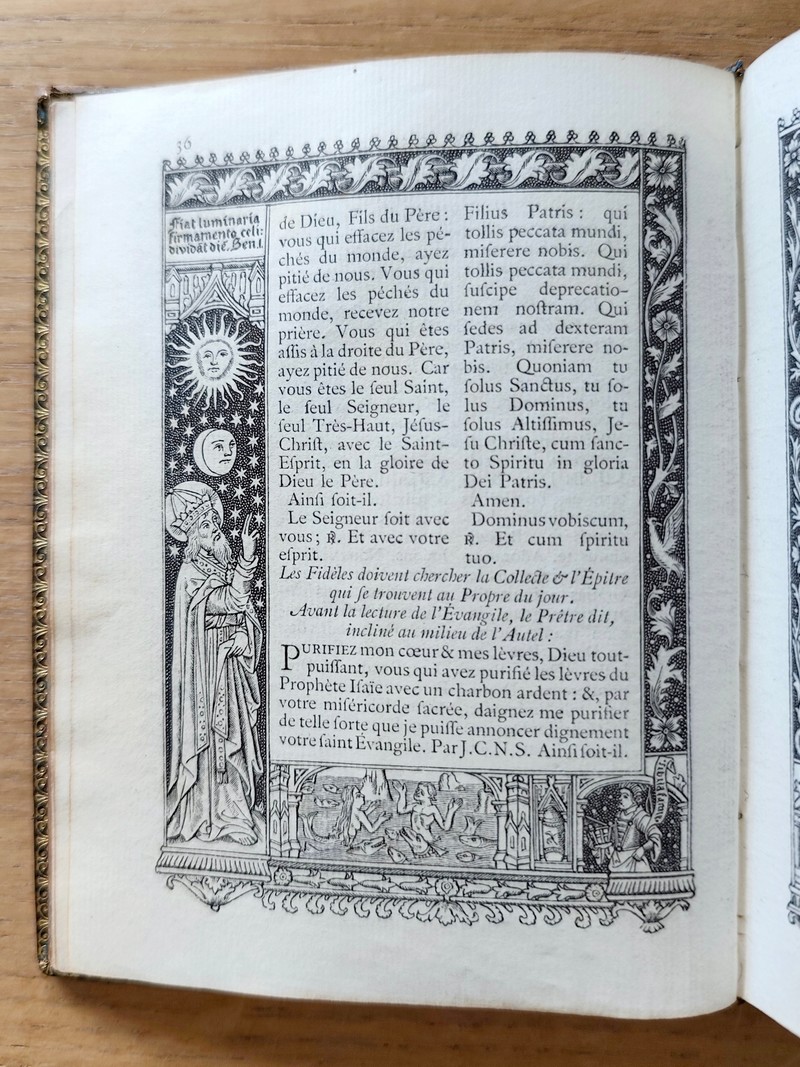 36
Fiat luminaria
firmamento celi:
dividāt diē. Gen. 1.
de Dieu, Fils du Père :
vous qui effacez les pé-
chés du monde, ayez
pitié de nous. Vous qui
effacez les péchés du
monde, recevez notre
prière. Vous qui êtes
aſſis à la droite du Père,
ayez pitié de nous. Car
vous êtes le ſeul Saint,
le ſeul Seigneur, le
ſeul Très-Haut, Jéſus-
Chriſt, avec le Saint-
Eſprit, en la gloire de
Dieu le Père.
Ainſi ſoit-il.
Le Seigneur ſoit avec
vous ; ℟. Et avec votre
eſprit.
Filius Patris : qui
tollis peccata mundi,
miſerere nobis. Qui
tollis peccata mundi,
ſuſcipe deprecatio-
nem noſtram. Qui
ſedes ad dexteram
Patris, miſerere no-
bis. Quoniam tu
ſolus Sanctus, tu ſo-
lus Dominus, tu
ſolus Altiſſimus, Je-
ſu Chriſte, cum ſanc-
to Spiritu in gloria
Dei Patris.
Amen.
Dominus vobiscum,
℟. Et cum ſpiritu
tuo.
Les Fidèles doivent chercher la Collecte & l'Épitre
qui ſe trouvent au Propre du jour.
Avant la lecture de l'Évangile, le Prêtre dit,
incliné au milieu de l'Autel :
PURIFIEZ mon cœur & mes lèvres, Dieu tout-
puiſſant, vous qui avez purifié les lèvres du
Prophète Iſaïe avec un charbon ardent : &, par
votre miſéricorde ſacrée, daignez me purifier
de telle ſorte que je puiſſe annoncer dignement
votre ſaint Évangile. Par J. C. N. S. Ainſi ſoit-il.